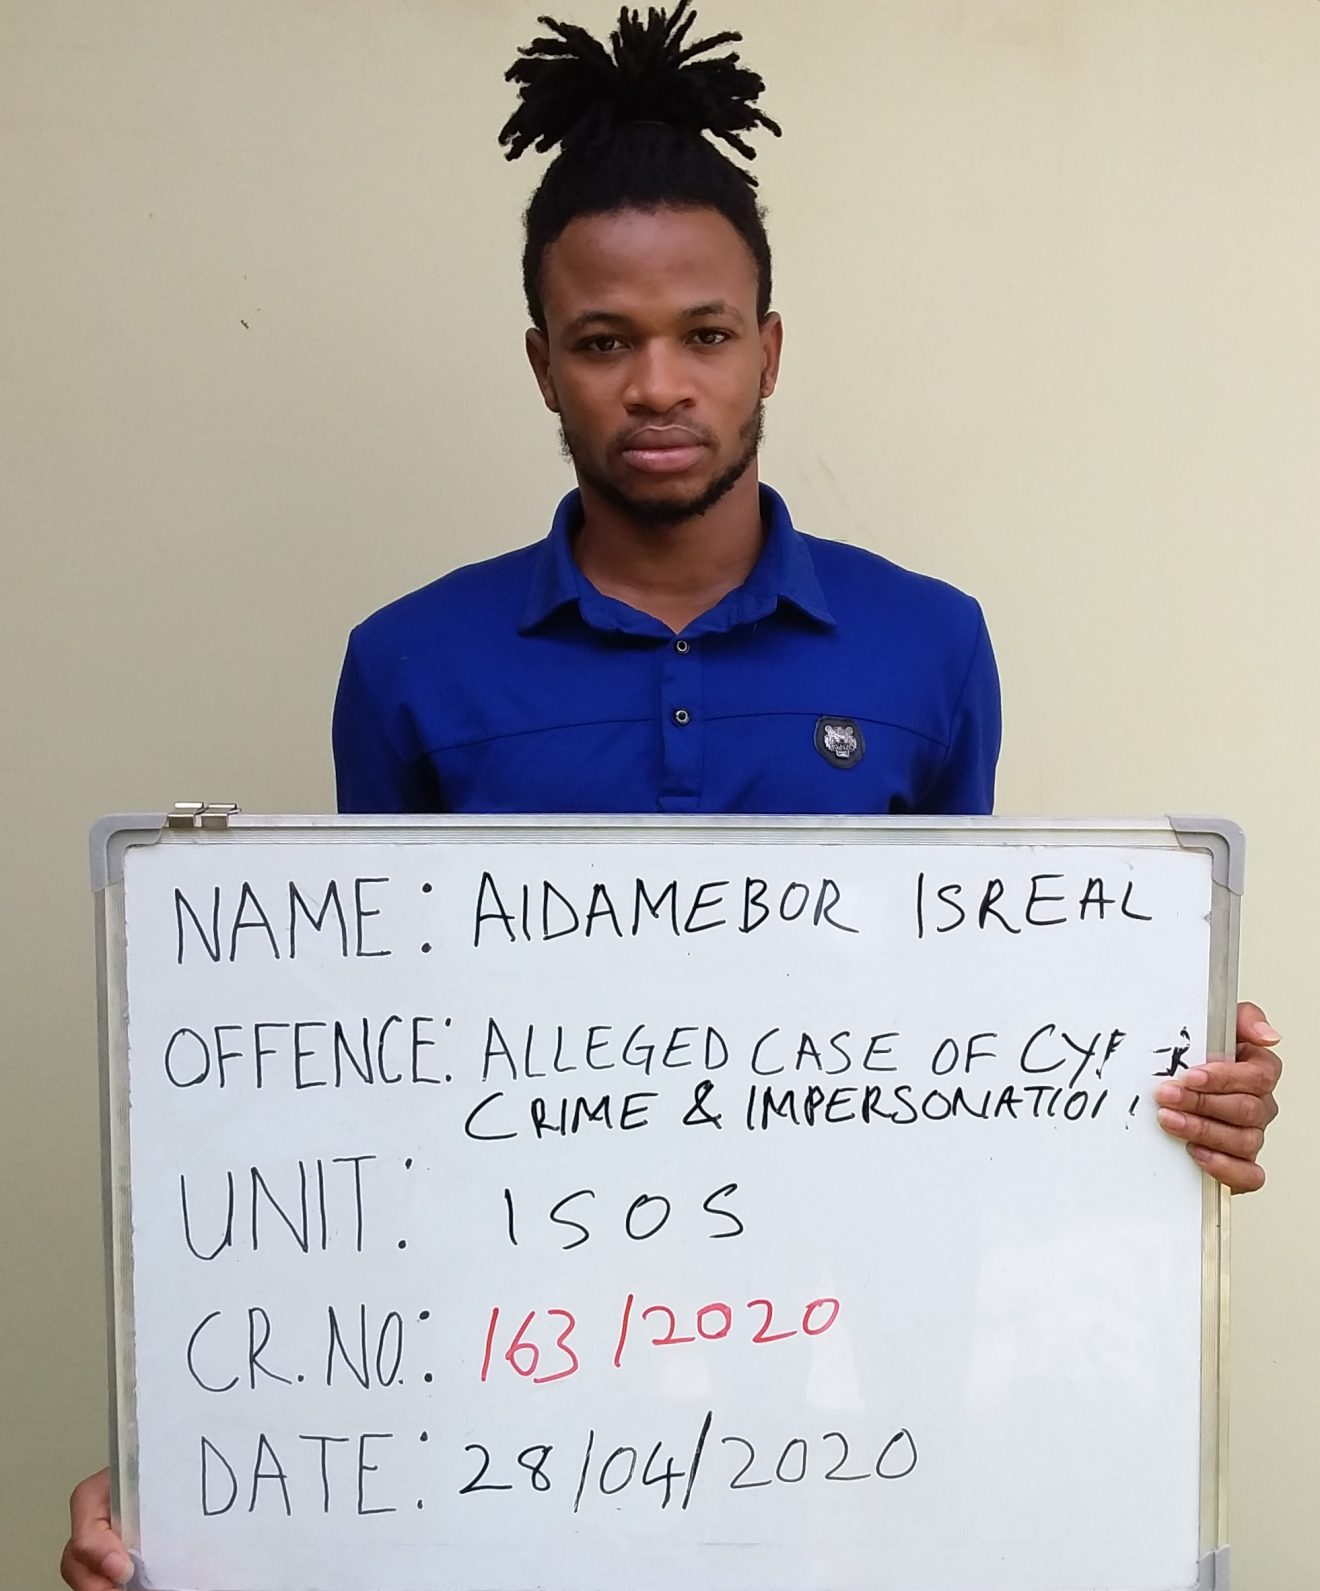 NAME: AIDAMEBOR ISREAL
OFFENCE: ALLEGED CASE OF
CRIME & IMPERSONATION
UNIT: ISOS
CR. NO.: 163/2020
DATE: 28/04/2020